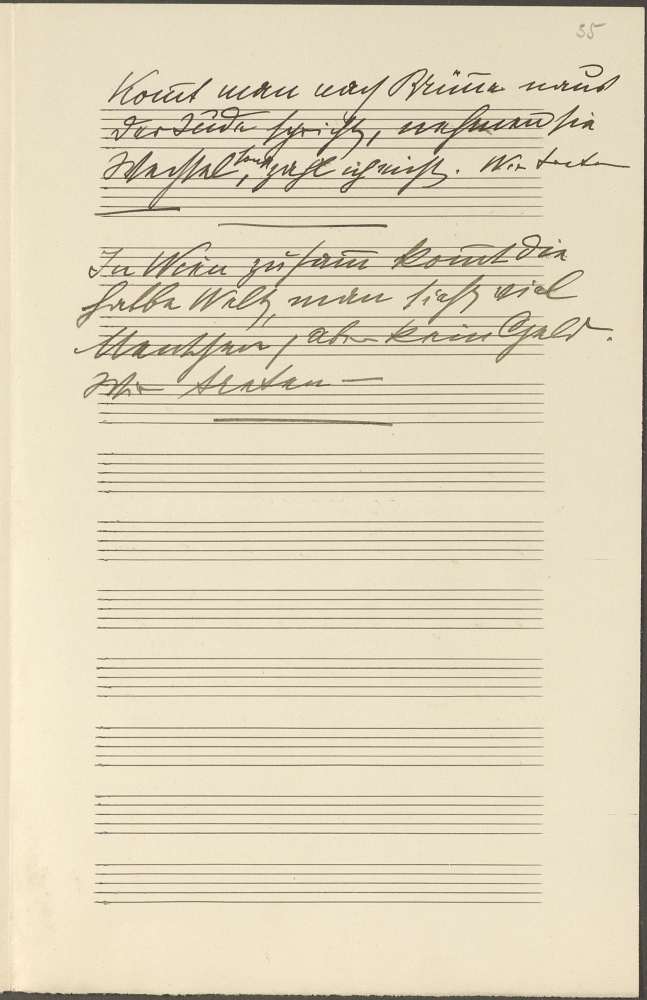 35
Kom̄t man nach Brünn naus
Der Jude spricht, nehmen sie
Wechsel, sonst zahl ich nicht. Wir treten
In Wien zusam̄ kom̄t die
halbe Welt, man sieht viel
Menschen, aber kein Geld.
Wir treten —